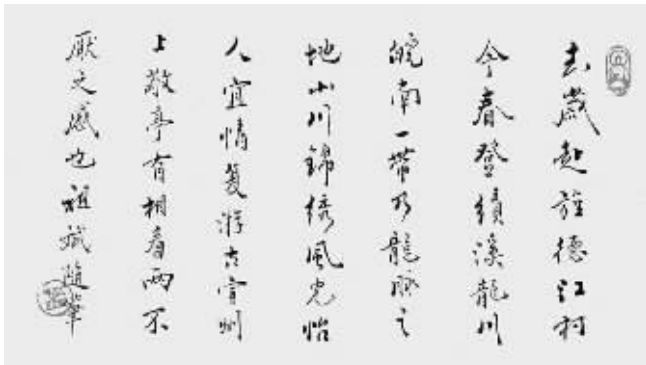 去歲赴旌德江村
今春登績溪龍川
皖南一帶乃龍脈之
地山川錦绣風光怡
人宜情复游古宣州
上敬亭有相看兩不
厭之感也祖斌隨筆